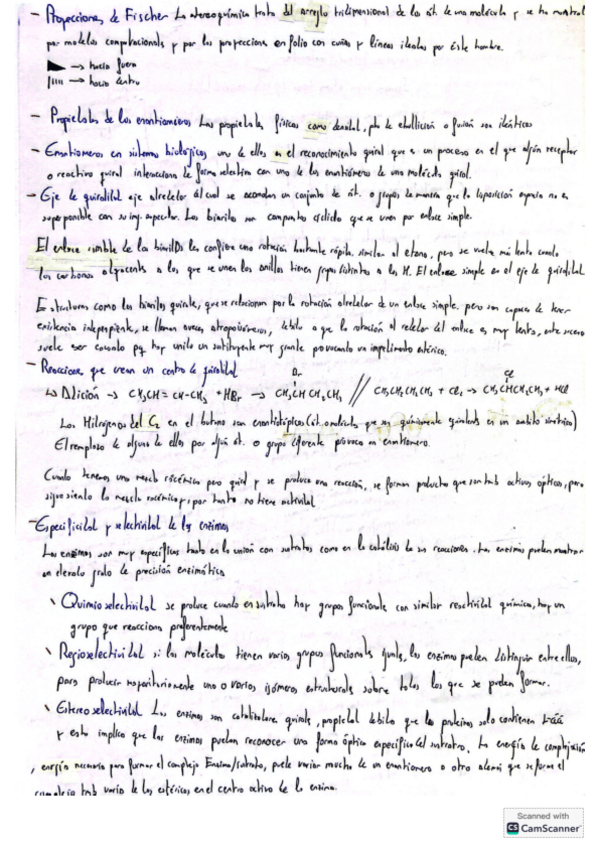 - Proyecciones de Fischer La estereoquímica trata del arreglo tridimensional de los át. de una molécula y se ha mostrado
por modelos computacionales y por las proyecciones en folio con cuñas y líneas ideadas por éste hombre.
→ hacia fuera
→ hacia dentro
- Propiedades de los enantiómeros Las propiedades físicas como densidad, pto de ebullición o fusión son idénticas
- Enantiómeros en sistemas biológicos uno de ellos es el reconocimiento quiral que es un proceso en el que algún receptor
o reactivo quiral interacciona de forma selectiva con uno de los enantiómeros de una molécula quiral.
- Eje de quiralidad eje alrededor del cual se acomodan un conjunto de át. o grupos de manera que la disposición espacial no es
superponible con su img. especular. Los biarilos son compuestos cíclicos que se unen por enlace simple.
El enlace simple de los biarilos les confiere una rotación bastante rápida, similar al etano, pero se vuelve más lento cuando
los carbonos adyacentes a los que se unen los anillos tienen grupos distintos a los H. El enlace simple es el eje de quiralidad
Estructuras como los biarilos quirales, que se relacionan por la rotación alrededor de un enlace simple pero son capaces de tener
existencia independiente, se llaman a veces, atropoisómeros, debido a que la rotación al rededor del enlace es muy lenta, este suceso
suele ser causado pq hay unido un sustituyente muy grande provocando un impedimento estérico.
- Reacciones que crean un centro de quiralidad
Br Cl
↳ Adición → CH₃CH = CH-CH₃ + HBr → CH₃CH CH₂CH₃ // CH₃CH₂CH₂CH₃ + Cl₂ → CH₃CHCH₂CH₃ + HCl
Los Hidrógenos del C₂ en el butano son enantiotópicos (át. o moléculas que son químicamente equivalentes en un ámbito simétrico)
El remplazo de alguno de ellos por algún át. o grupo diferente provoca un enantiómero.
Cuando tenemos una mezcla racémica pero quiral y se produce una reacción, se forman productos que son tmb activos ópticos, pero
sigue siendo la mezcla racémica y por tanto no tiene actividad
- Especificidad y selectividad de las enzimas
Las enzimas son muy específicas tanto en la unión con sustratos como en la catálisis de sus reacciones. Las enzimas pueden mostrar
un elevado grado de precisión enzimática
\ Quimioselectividad se produce cuando en sustrato hay grupos funcionales con similar reactividad química, hay un
grupo que reacciona preferentemente
\ Regioselectividad si las moléculas tienen varios grupos funcionales iguales, las enzimas pueden distinguir entre ellos,
para producir mayoritariamente uno o varios isómeros estructurales sobre todos los que se puedan formar.
\ Estereoselectividad Las enzimas son catalizadores quirales, propiedad debida que las proteínas solo contienen
y esto implica que las enzimas puedan reconocer una forma óptica específica del sustrato. La energía de complejación
, energía necesaria para formar el complejo Enzima/sustrato, puede variar mucho de un enantiómero a otro además que se forme el
complejo tmb varía de los estéricos en el centro activo de la enzima.
Scanned with
CS CamScanner